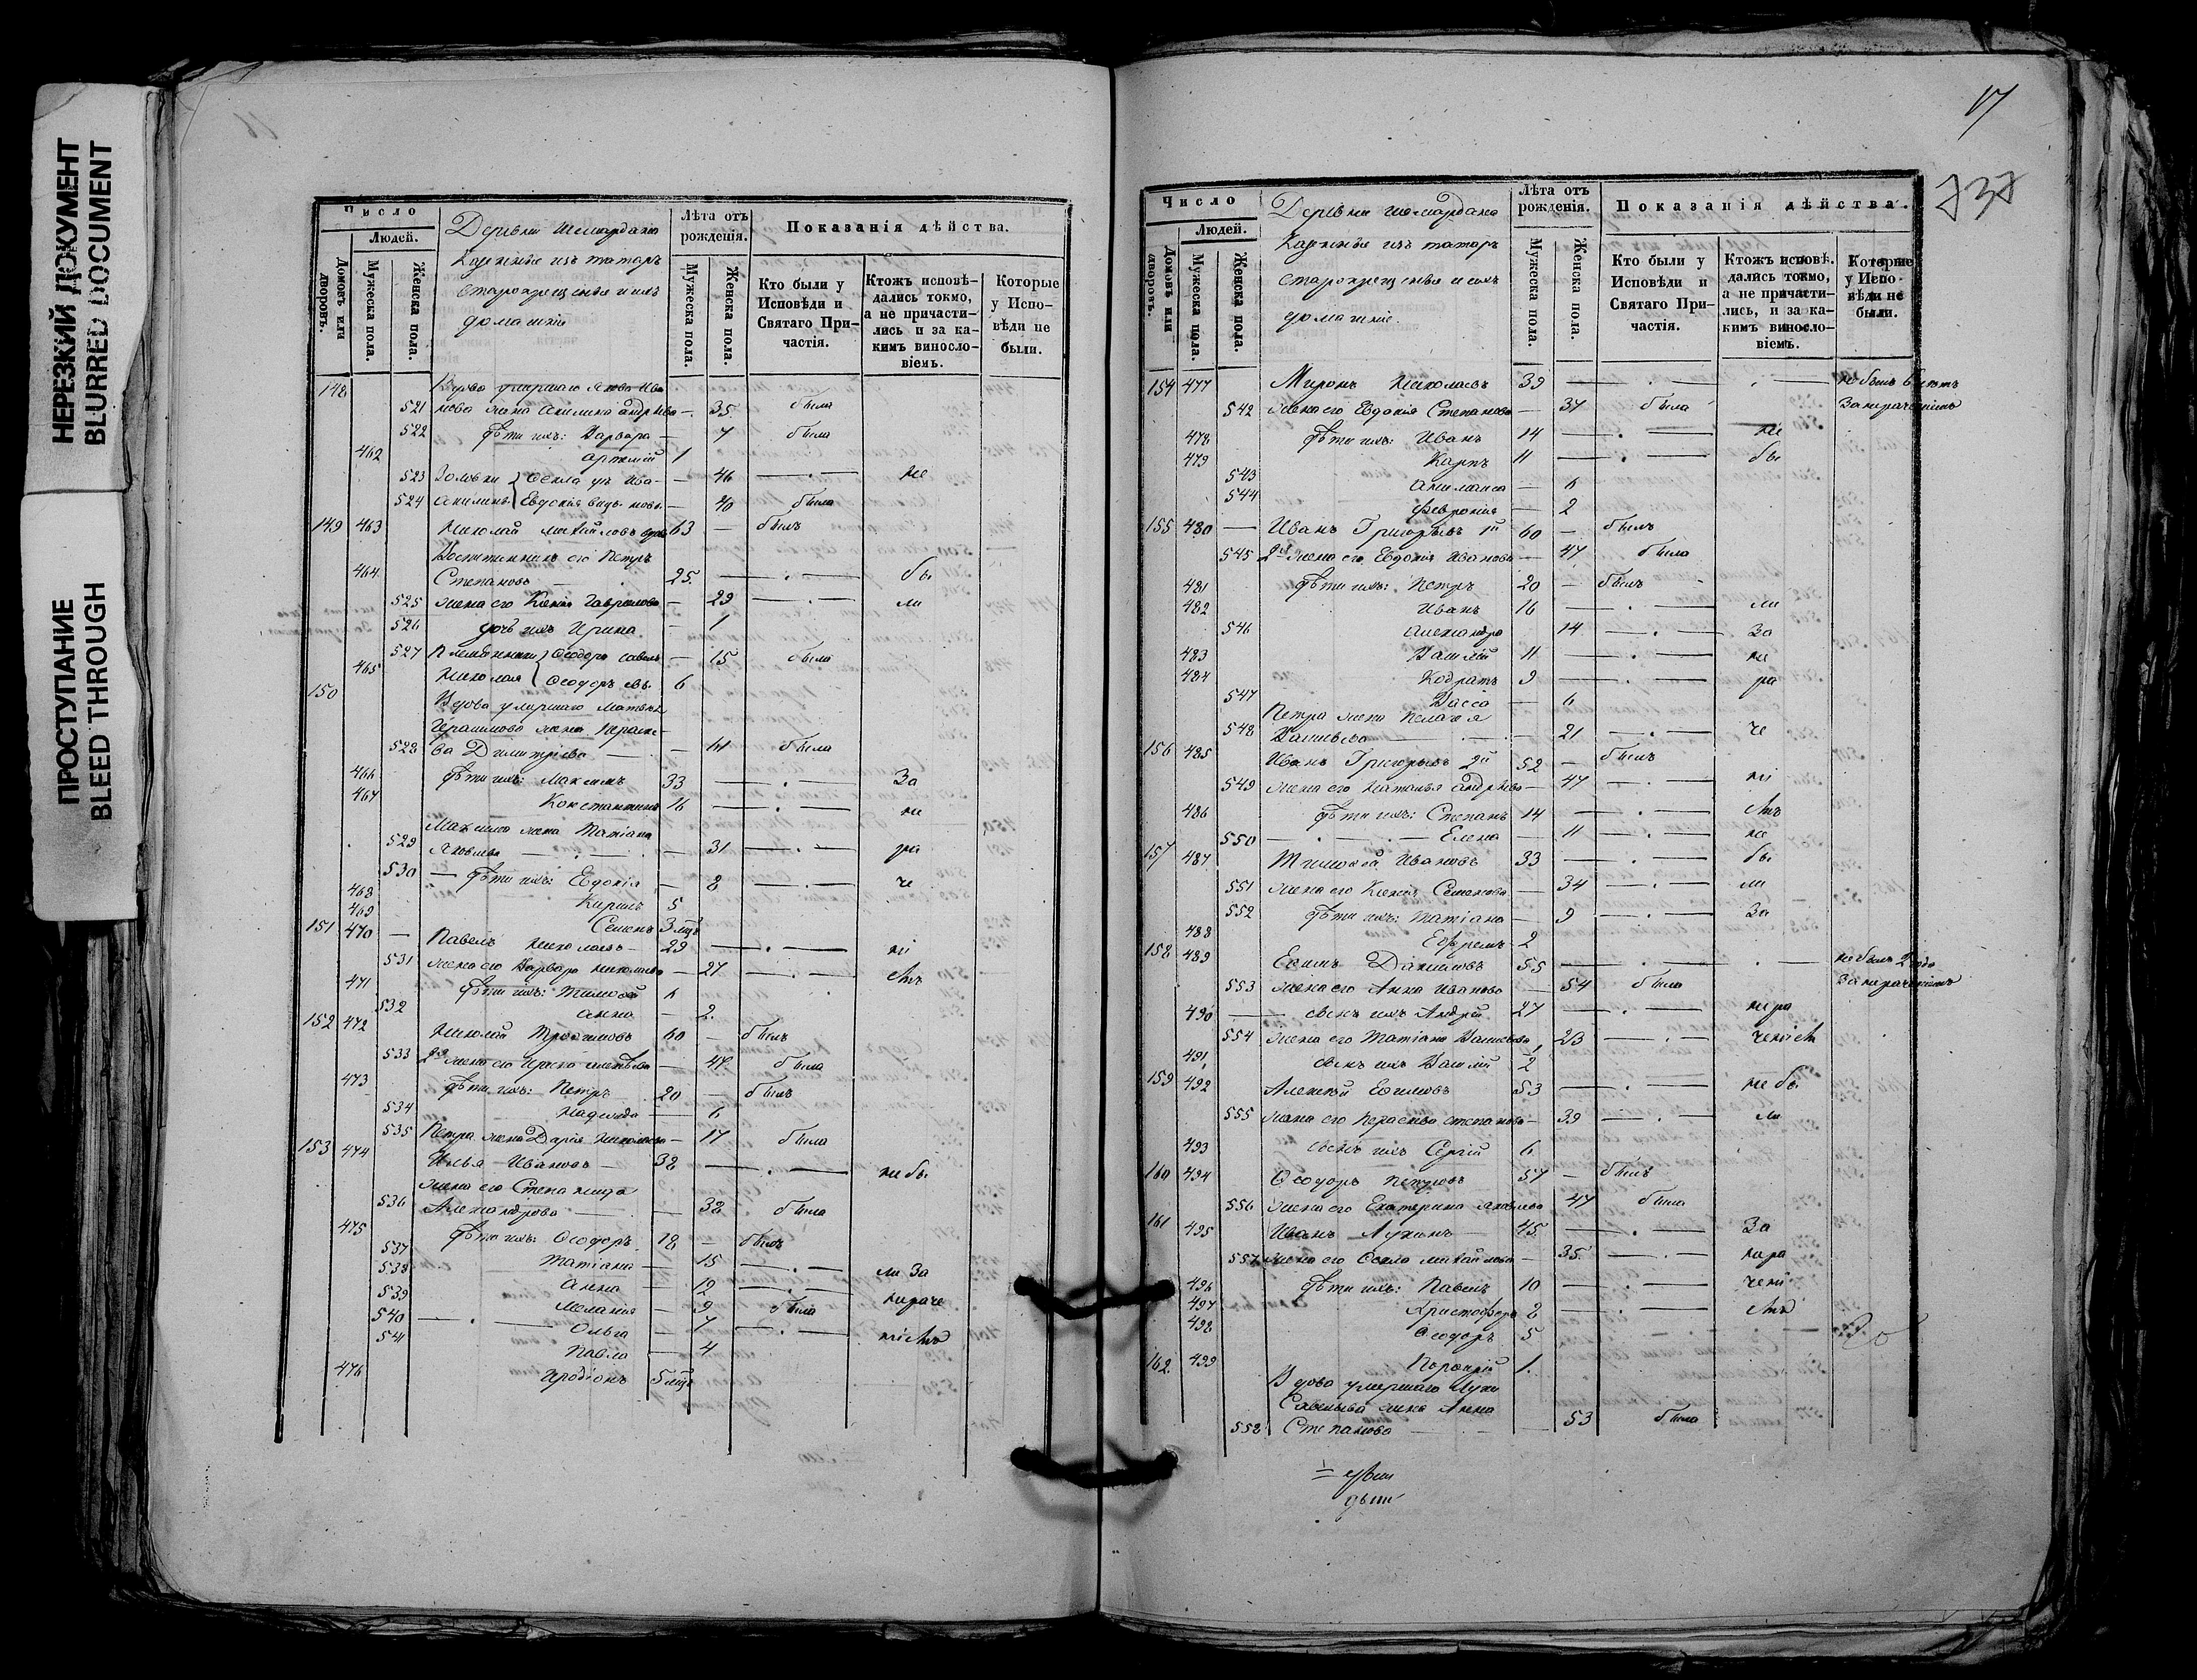 НЕРЕЗКИЙ ДОКУМЕНТ
BLURRED DOCUMENT
ПРОСТУПАНИЕ
BLEED THROUGH
Число
Людей.
Домовъ или дворовъ.
Мужеска пола.
Женска пола.
Деревни Шемардана
Казенные изъ татаръ
старокрещеные и ихъ
домашніе
Лѣта отъ рожденія.
Мужеска пола.
Женска пола.
Показанія дѣйства.
Кто были у Исповѣди и Святаго Причастія.
Ктожъ исповѣдались токмо, а не причастились и за какимъ винословіемъ.
Которые у Исповѣди не были.
148 Вдова умершаго Якова Ива
521 нова жена Акилина Андрѣева — 35 была
522 дѣти ихъ: Варвара — 7 была
462 Артемій 1
523 Ѳекла — 46 — . — не
524 Евдокія — 40 была
149 463 Николай Михайловъ 63 — былъ
Воспитанникъ его Петръ
464 Степановъ 25 — . — бы
525 жена его Ксенія Гаврилова — 29 — . — ли
526 дочь ихъ Ирина — 1
527 — 15 была
465 Николая Ѳеодоръ 6
150 Вдова умершаго Матвѣя
Герасимова жена Параске-
528 ва Димитріева — 61 была
466 дѣти ихъ: Максимъ 33 — . — за
467 Константинъ 16 — . — не
Максима жена Татіана
529 Яковлева — . — 31 — . — ра
530 — дѣти ихъ: Евдокія — 8 — . — че
468 Кирилъ 5
469 Семенъ 3 мѣс
151 470 — Павелъ Николаевъ 29 — . — ні
531 жена его Варвара Николаева — 27 — . — емъ
471 дѣти ихъ: Тимоѳей 6
532 Анна — 2
152 472 Николай Трофимовъ 60 — былъ
533 2я жена его — 47 была
473 дѣти ихъ: Петръ 20 — былъ
534 Надежда — 6
535 Петра жена Дарія Николаева — 17 была
153 474 Илья Ивановъ 38 — . — не бы
жена его Степанида
536 Александрова — 38 была
475 дѣти ихъ: Ѳеодоръ 18 — былъ
537 Татіана — 15 — . — ли за
538 Анна — 12 — . —
539 Меланія — 9 была нераче
540 — . — Ольга — 7 — . — ніемъ
541 Павла — 4
476 Иродіонъ 5 мѣс
17
737
Число
Людей.
Домовъ или дворовъ.
Мужеска пола.
Женска пола.
Деревни Шемардана
Казенные изъ татаръ
старокрещеные и ихъ
домашніе.
Лѣта отъ рожденія.
Мужеска пола.
Женска пола.
Показанія дѣйства.
Кто были у Исповѣди и Святаго Причастія.
Ктожъ исповѣдались токмо, а не причастились, и за какимъ винословіемъ.
Которые у Исповѣди не были.
154 477 Миронъ Николаевъ 39 — . — . — не былъ 6 лѣтъ
542 жена его Евдокія Степанова — 37 была за нераченіемъ
478 дѣти ихъ: Иванъ 14 — . — не
479 Карпъ 11 — . — бы
543 — 6
544 Февронія — 2
155 480 — Иванъ Григорьевъ 1й 60 — былъ
545 2я жена его Евдокія Иванова — 47 была
481 дѣти ихъ: Петръ 20 — былъ
482 Иванъ 16 — . — ли
546 Александра 14 — . — за
483 Василій 11 — . — не
484 Кодратъ 9 — . — ра
547 Васса — 6
Петра жена Пелагея
548 Васильева — 21 — . — че
156 485 Иванъ Григорьевъ 2й 52 — былъ
549 жена его Наталья Андрѣева — 47 — . — ні
486 дѣти ихъ: Степанъ 14 — . — емъ
550 — . — Елена — 11 — . — не
157 487 Тимоѳей Ивановъ 33 — . — бы
551 жена его Ксенія Семенова — 34 — . — ли
552 дѣти ихъ: Татіана — 9 — . — за
488 Ефремъ 2
158 489 Ефимъ Даниловъ 55 — . — . — не былъ 2 года
553 жена его Анна Иванова — 54 была за нераченіемъ
490 — сынъ ихъ Андрей 27 — . — нера
554 жена его Татіана Васильева 23 — . — ченіем
491 сынъ ихъ Василій 2
159 492 Алексѣй Ефимовъ 53 — . — не бы
555 жена его Параскева Степанова — 39 — . — ли
493 сынъ ихъ Сергій 6
160 494 Ѳеодоръ Петровъ 57 — былъ
556 жена его Екатерина Яковлева 47 была
161 495 Иванъ Лукинъ 45 — . — за
557 жена его Ѳекла Михайлова — 35 — . — нера
496 дѣти ихъ: Павелъ 10 — . — чені
497 Христофоръ 8 — . — емъ
498 Ѳеодоръ 5
499 Порфирій 1
162 Вдова умершаго Луки
Савельева жена Анна
558 Степанова — 53 была